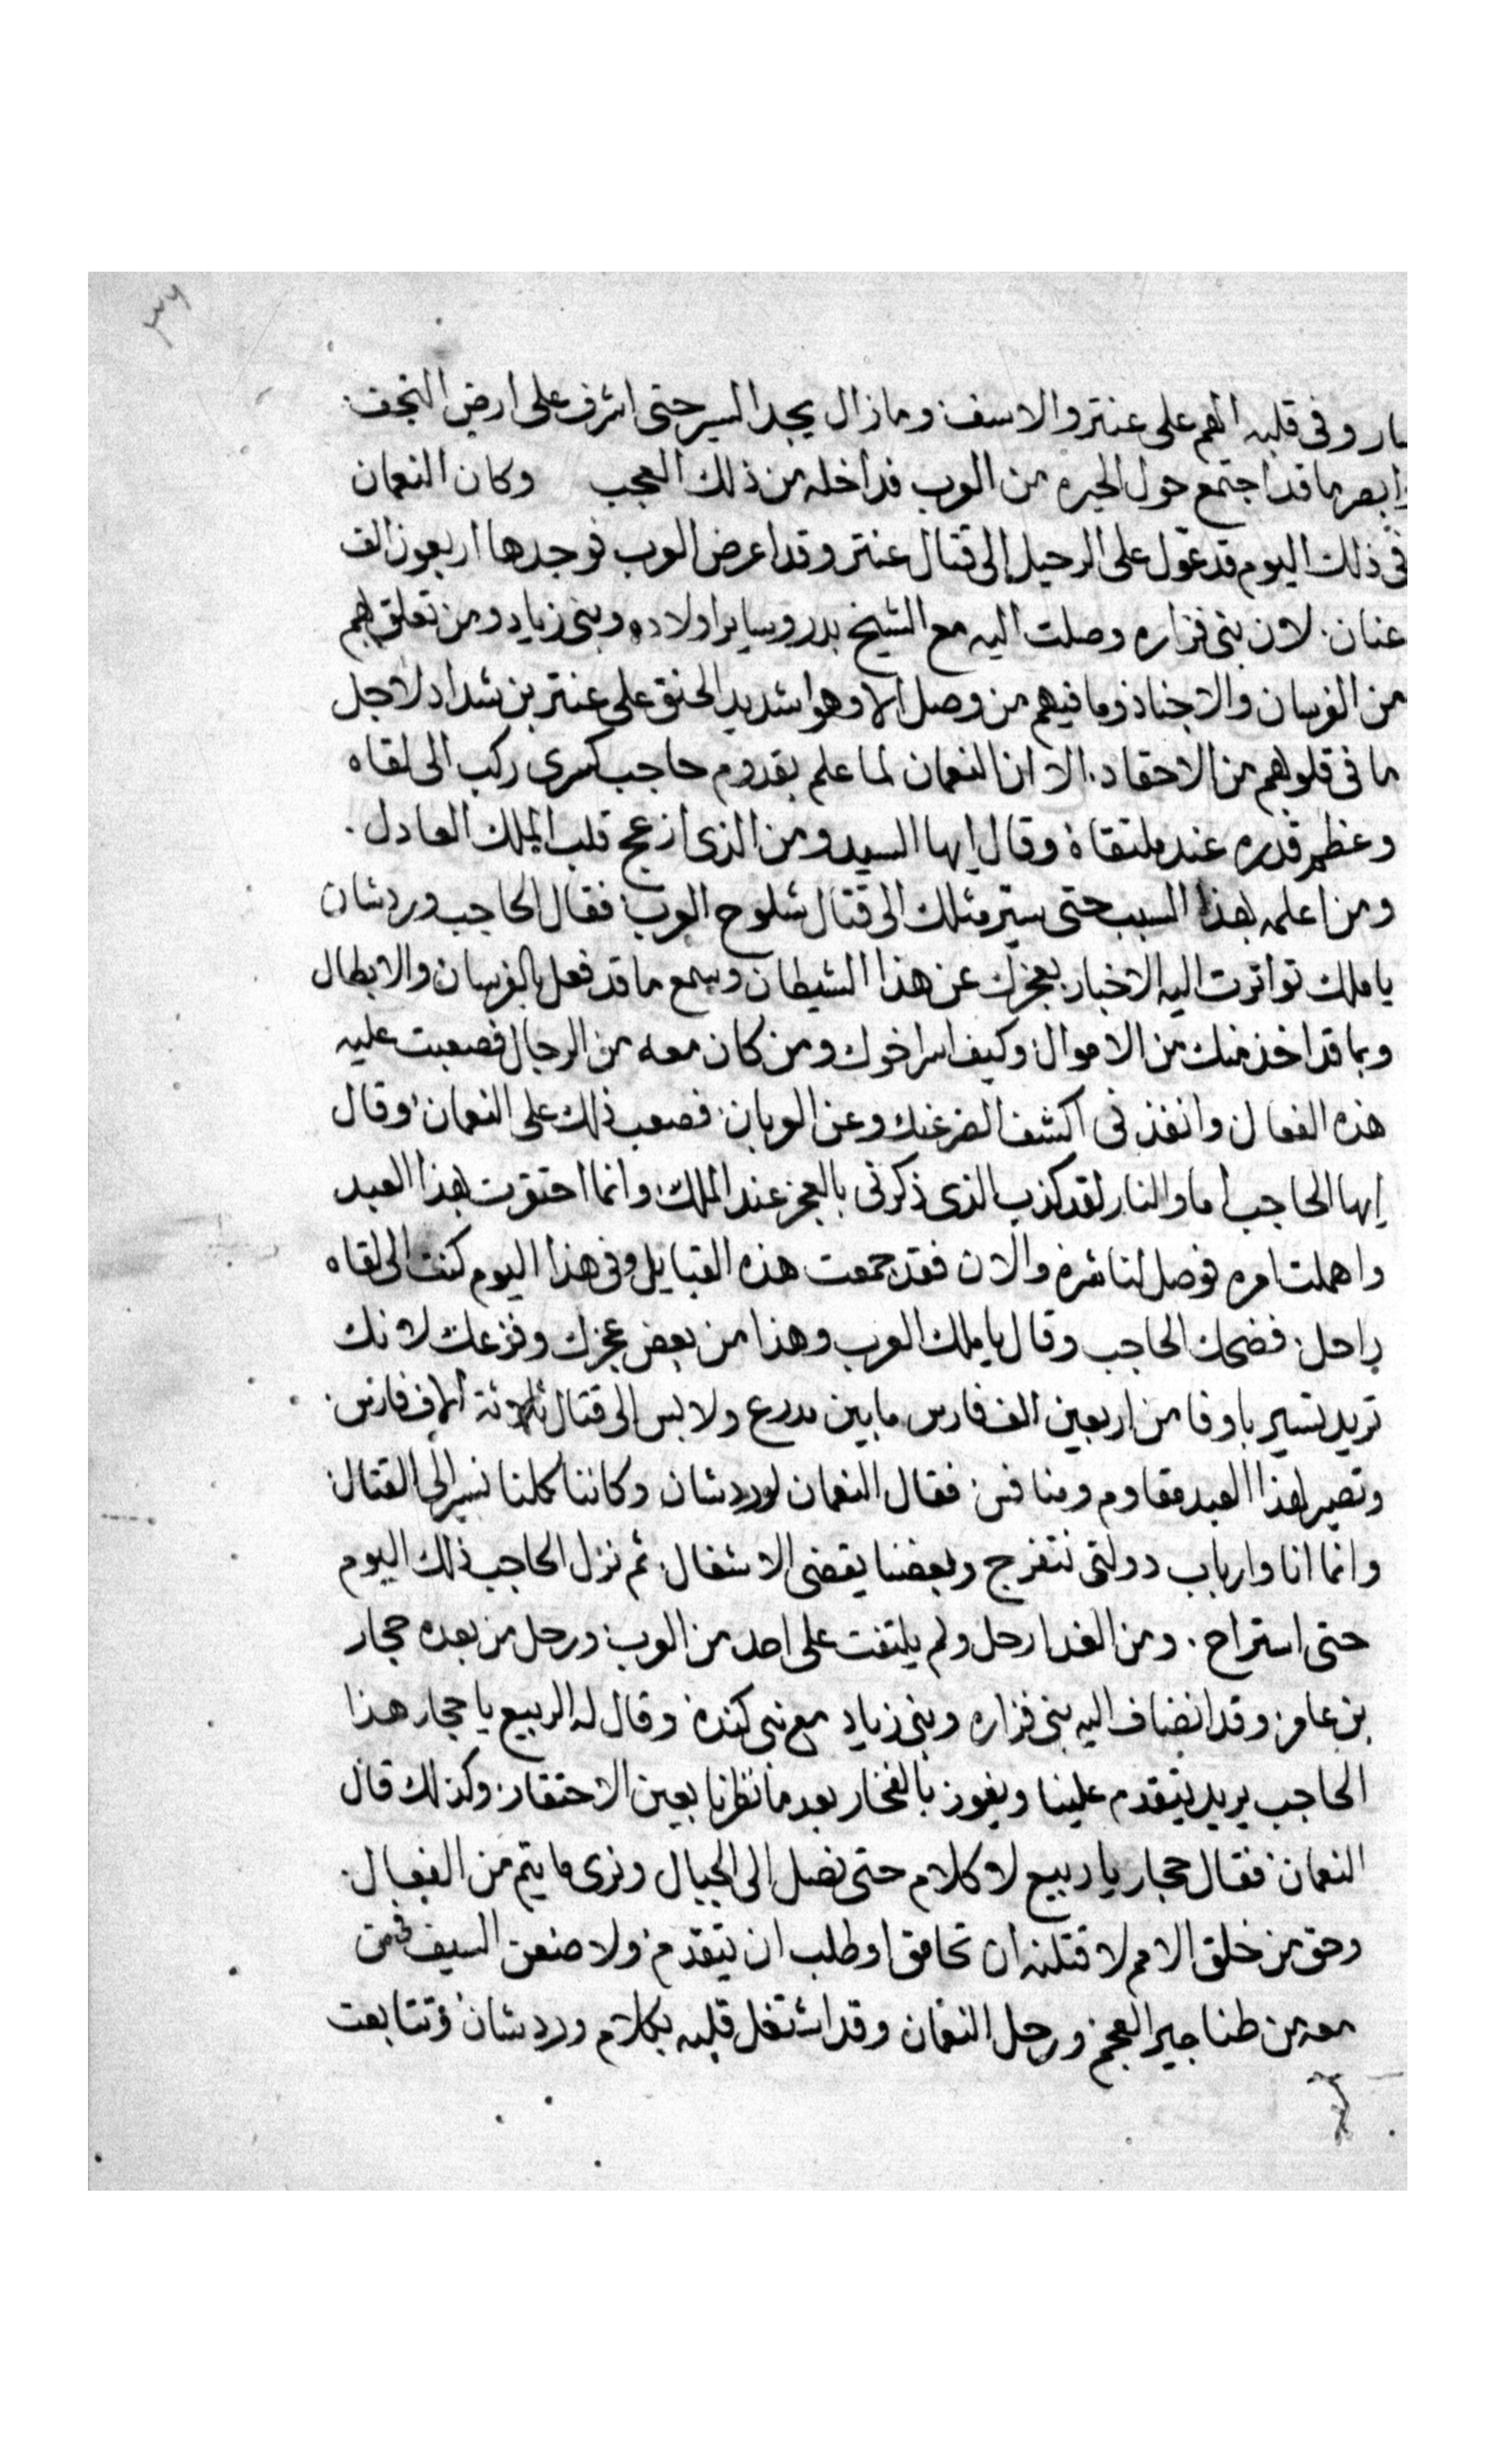 ٣٦
سار وفى قلبه الهم على عنتر والاسف وما زال يجد السير حتى اشرف على ارض النجف
وابصر ما قد اجتمع حول الحيره من العرب فداخله من ذلك العجب وكان النعمان
فى ذلك اليوم قد عول على الرحيل إلى قتال عنتر وقد اعرض العرب فوجدها اربعون الف
عنان لان بنى فزاره وصلت اليه مع الشيخ بدر وساير اولاده وبنى زياد ومن تعلق بهم
من الفرسان والاجناد وما فيهم من وصل الا وهو شديد الحنق على عنتر بن شداد لاجل
ما فى قلوبهم من الاحقاد الا ان النعمان لما علم بقدوم حاجب كسرى ركب الى لقاه
وعظم قدره عند ملتقاه وقال إيها السيد ومن الذى ازعج قلب الملك العادل
ومن اعلمه بهذا السبب حتى سير مثلك الى قتال شلوح العرب فقال الحاجب وردشان
يا ملك تواترت اليه الاخبار بعجزك عن هذا الشيطان وسمع ما قد فعل بالفرسان والابطال
وبما قد اخذ منك من الاموال وكيف اسر اخوك ومن كان معه من الرجال فصعبت عليه
هذه الفعال وانفذنى اكشف الضر عنك وعن العربان فصعب ذلك على النعمان وقال
إيها الحاجب أما والنار لقد كذب الذى ذكرنى بالعجز عند الملك وانما احتقرت بهذا العبد
واهملت امره فوصل لنا شره والان فقد جمعت هذه القبايل وفى هذا اليوم كنت الى لقاه
راحل فضحك الحاجب وقال يا ملك العرب وهذا من بعض عجزك وفزعك لانك
تريد تسير باوفا من اربعين الف فارس ما بين مدرع ولابس الى قتال ثلاثة الاف فارس
وتصير لهذا العبد مقاوم ومنافس فقال النعمان لوردشان وكاننا كلنا نسير الى القتال
وانما انا وارباب دولتى نتفرج وبعضنا يقضى الاشغال ثم نزل الحاجب ذلك اليوم
حتى استراح ومن الغد ارحل ولم يلتفت على احد من العرب ورحل من بعده حجار
بن عامر وقد انضاف اليه بنى فزاره وبنى زياد مع بنى كندة وقال له الربيع يا حجار هذا
الحاجب يريد يتقدم علينا ويفوز بالفخار بعد ما نظرنا بعين الاحتقار وكذلك قال
النعمان فقال حجار يا ربيع لا كلام حتى نصل الى الجبال ونرى ما يتم من الفعال
وحق من خلق الامم لاقتلنه ان تحامق او طلب ان يتقدم ولاضعن السيف فى من
معه من طناجير العجم ورحل النعمان وقد اشتغل قلبه بكلام وردشان وتتابعت